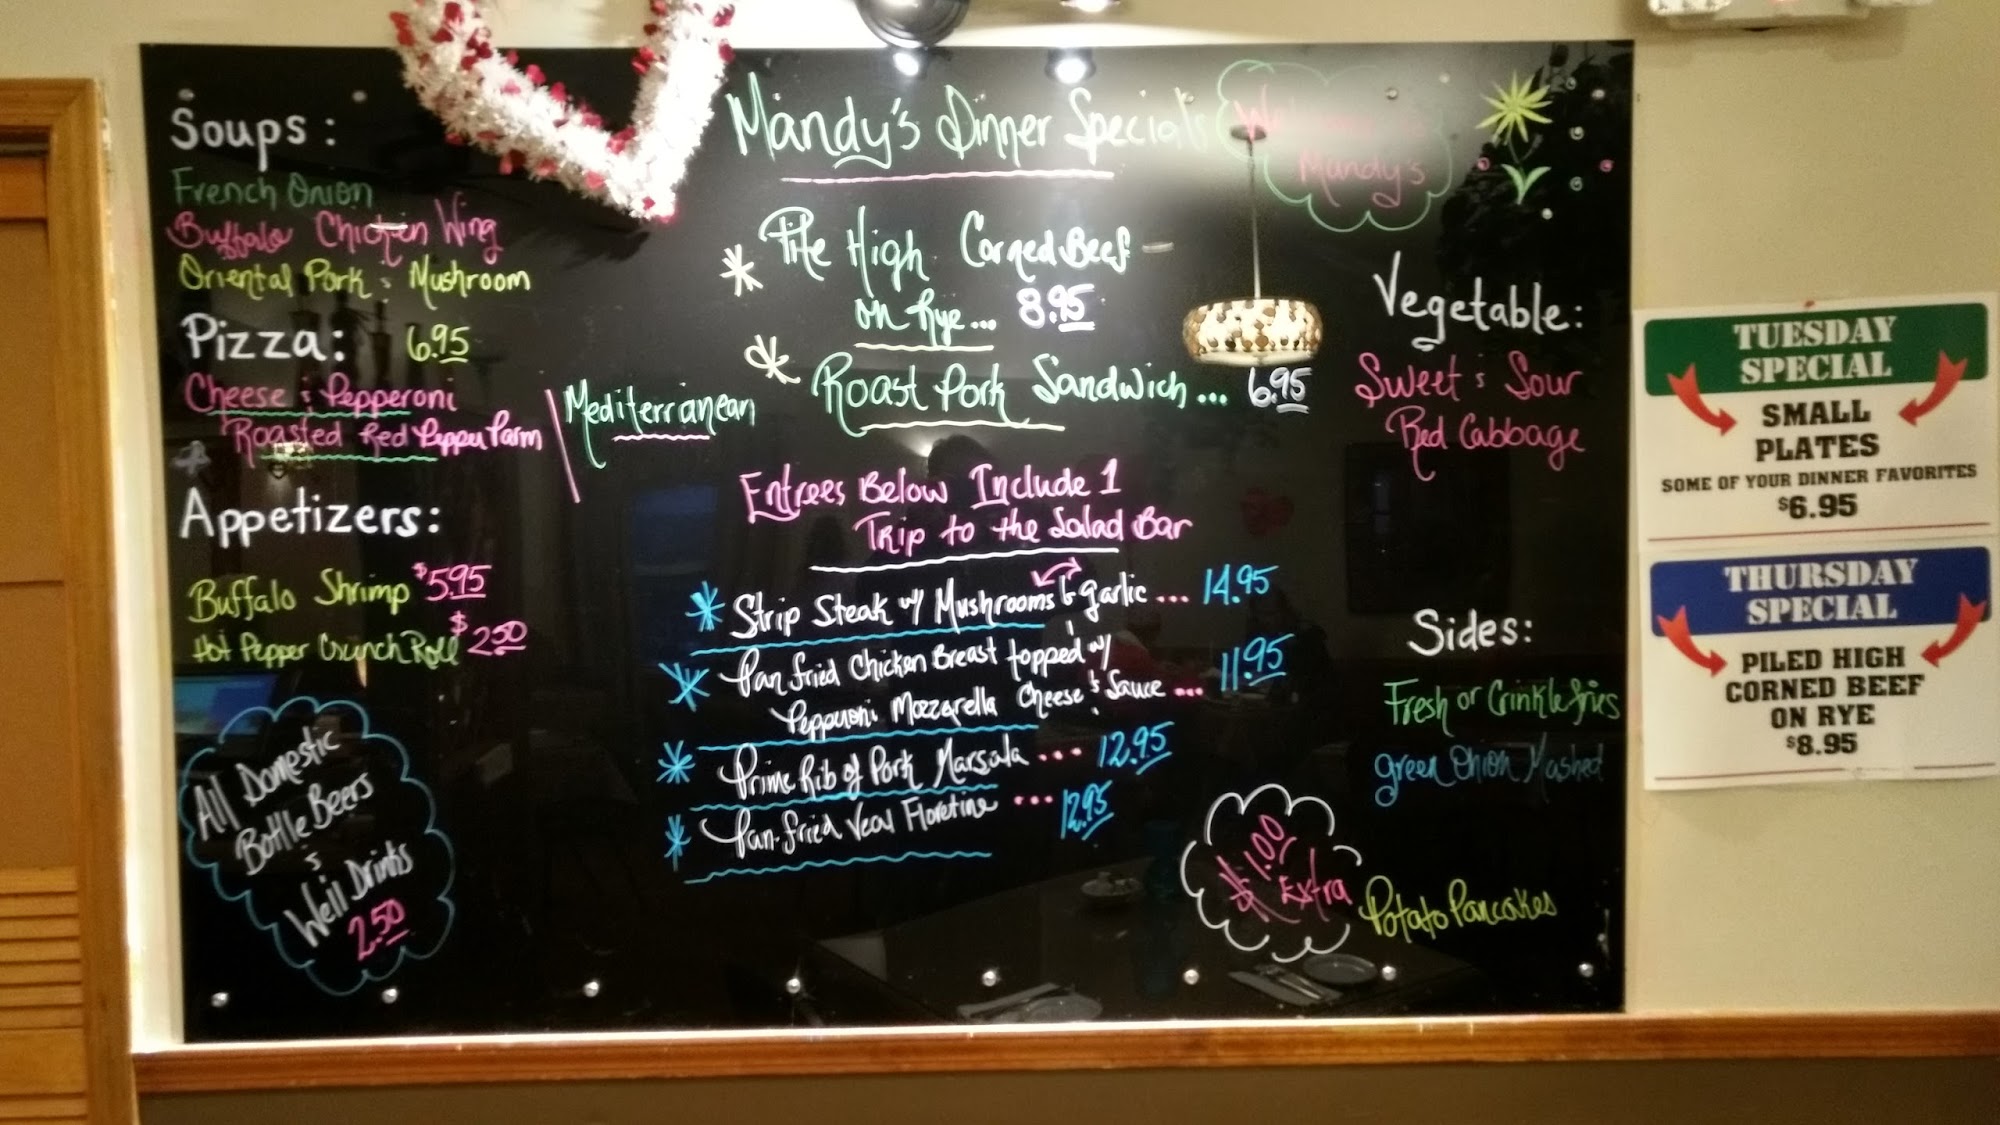 Soups:
French Onion
Buffalo Chicken Wing
Oriental Pork & Mushroom
Pizza: 6.95
Cheese & Pepperoni
Roasted Red Pepper Parm
Mediterranean
Appetizers:
Buffalo Shrimp $5.95
Hot Pepper Crunch Roll $2.50
All Domestic
Bottle Beers
&
Well Drinks
2.50
Mandy's Dinner Specials
Pile High Corned Beef
on Rye... 8.95
Roast Pork Sandwich... 6.95
Entrees Below Include 1
Trip to the Salad Bar
Strip Steak w/ Mushrooms & garlic ... 14.95
Pan fried Chicken Breast topped w/
Pepperoni Mozzarella Cheese & Sauce ... 11.95
Prime Rib of Pork Marsala ... 12.95
Pan-fried Veal Floretine ... 12.95
Mandy's
Vegetable:
Sweet & Sour
Red Cabbage
Sides:
Fresh or Crinkle fries
green Onion Mashed
$1.00
Extra
Potato Pancakes
TUESDAY
SPECIAL
SMALL
PLATES
SOME OF YOUR DINNER FAVORITES
$6.95
THURSDAY
SPECIAL
PILED HIGH
CORNED BEEF
ON RYE
$8.95